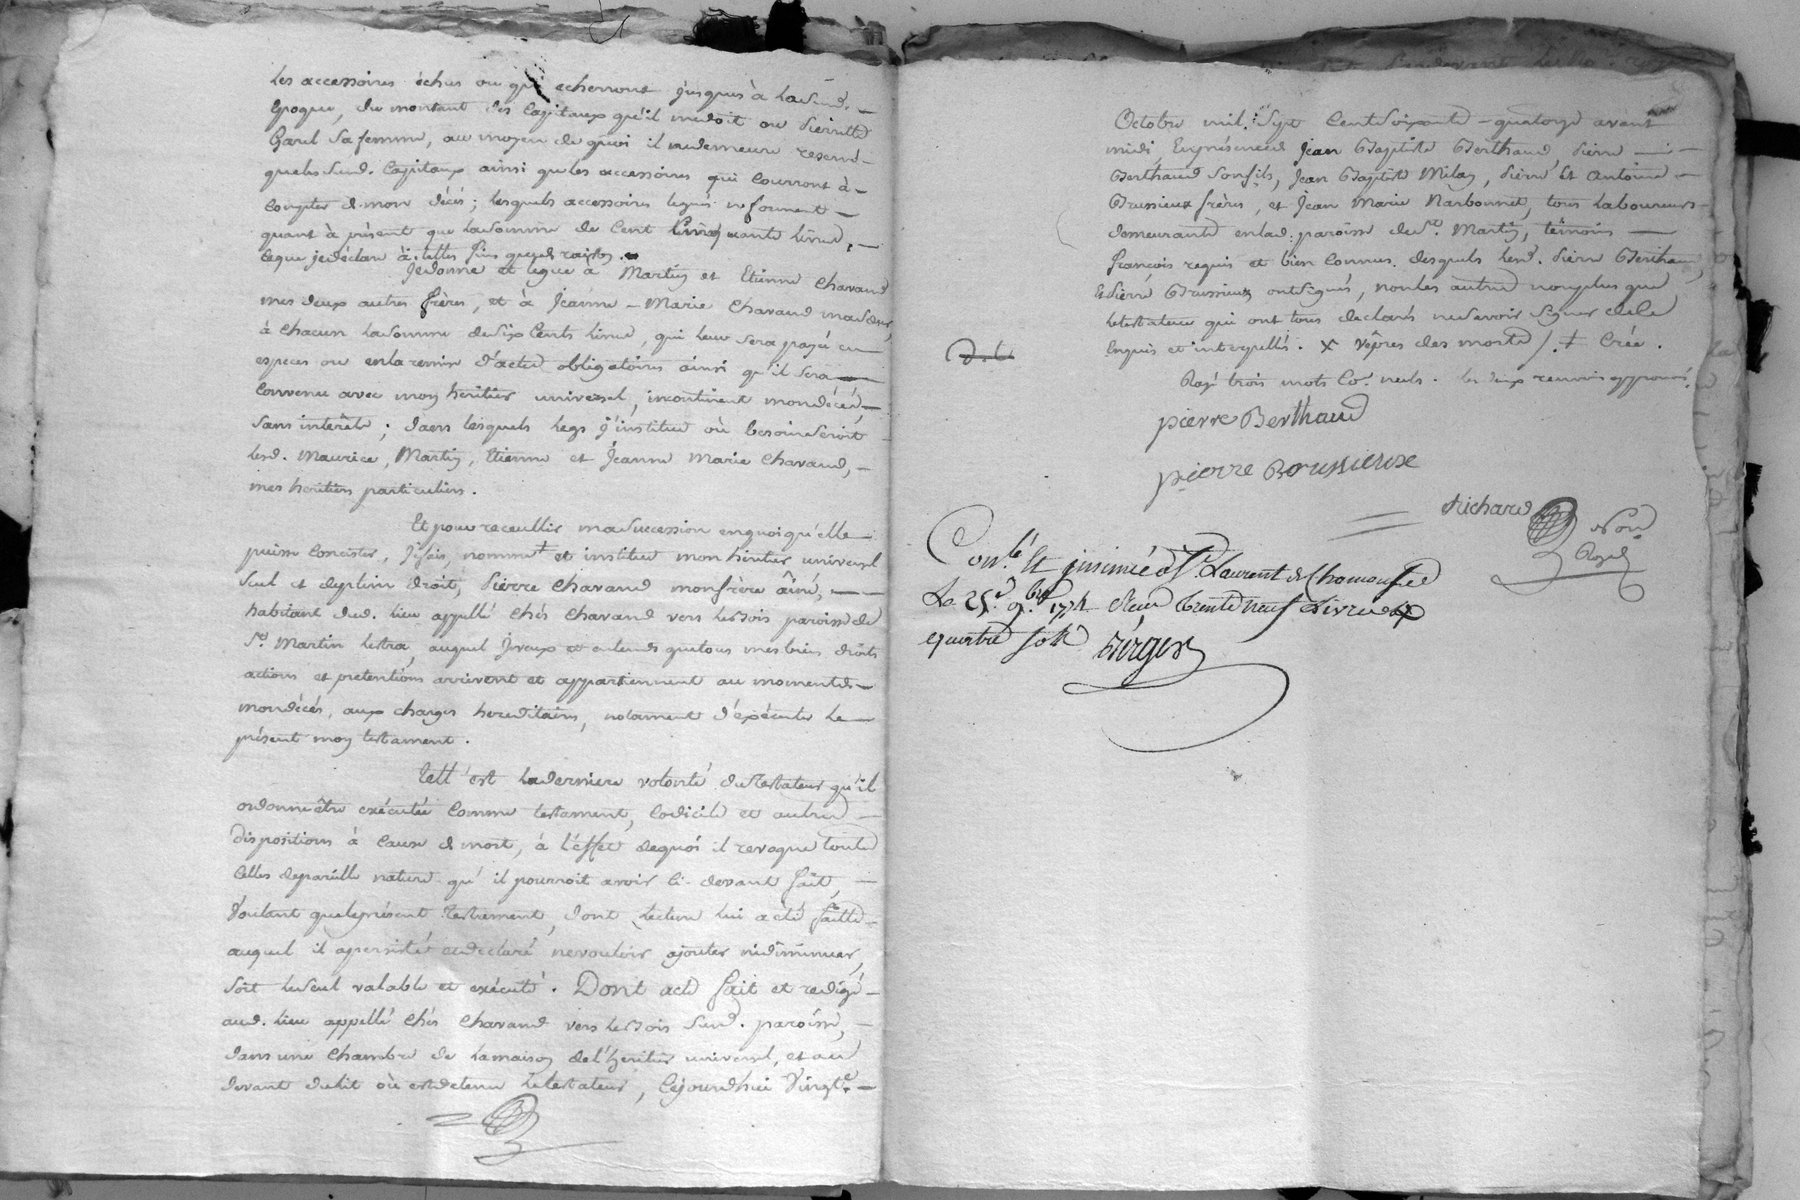 les accessoires échus ou qui echerront jusques à lasusd.
époque, du montant des Capitaux qu'il medoit ou pierrette
Garel sa femme, au moyen de quoi il nedemeure reservé
quelesusd. Capitaux ainsi queles accessoires qui Courront à
Compter de mon décés; lesquels accessoires legués ne forment
quant à présent que lasomme de Cent Cinquante livres,
ceque jedéclare à telles fins que de raison.
Jedonne et legue à Martin et Etienne Chavand
mes deux autres frères, et à Jeanne-Marie Chavand masœur,
à Chacun lasomme desix Cents livres, qui leur sera payée en
especes ou enla remise d'actes obligatoires ainsi qu'il sera
Convenu avec mon heritier universel, incontinent mondécés,
sans intérêts; dans lesquels legs j'institue où besoin seroit
lesd. Maurice, Martin, Etienne et Jeanne Marie Chavand,
mes heritiers particuliers.
Et pour receuillir masuccession enquoiqu'elle
puisse Concister, j'ai fais, nommé + et institué mon héritier universel
seul et deplein droit, Pierre Chavand monfrère aîné,
habitant dud. lieu appellé chés Chavand vers lebois paroisse de
St. Martin lestra, auquel jeveux et entends quetous mes biens droits
actions et prétentions arrivent et appartiennent au moment de
mondécés, aux charges hereditaires, notament d'exécuter le
présent mon testament.
Tell'est laderniere volonté dutestateur qu'il
ordonne être exécutée Comme testament, Codicile et autres
dispositions à Cause de mort, à l'effet dequoi il revoque toutes
Celles depareille nature qu'il pourroit avoir ci-devant fait,
Voulant queleprésent testament, dont lecture lui a été faitte
auquel il apersisté et declaré nevouloir ajouter nidiminuer,
soit leseul valable et exécuté. Dont acte fait et redigé
aud. lieu appellé Chés Chavand vers lebois susd. paroisse,
dans une Chambre de lamaison del'heritier universel, et au
devant dulit où est detenu letestateur, Cejourdhui Vingt
Octobre mil. sept Centsoixante-quatorze avant
midi, Enprésence de Jean Baptiste Berthaud, Pierre
Berthaud sonfils, Jean Baptiste Milan, Pierre et Antoine
Brussieux frères, et Jean Marie Narbonnet, tous laboureurs
demeurants enlad. paroisse deSt. Martin, témoins
françois requis et bien Connus. desquels lesd. Pierre Berthaud
Et Pierre Brussieux ontsigné, nonles autres nonplus que
letestateur qui ont tous declarés nesavoir signer dece
Enquis et interpellés. x vêpres des morts /. + Créé.
Rayé trois mots Co. nuls. les deux renvois approuvés.
pierre Berthaud
pierre Brussieux
Richard Not.
Royal
Conlé Et insinué à St. Laurent de Chamousset
Le 25e. 9bre 1774 Reçu trente neuf Livres
quatre sols